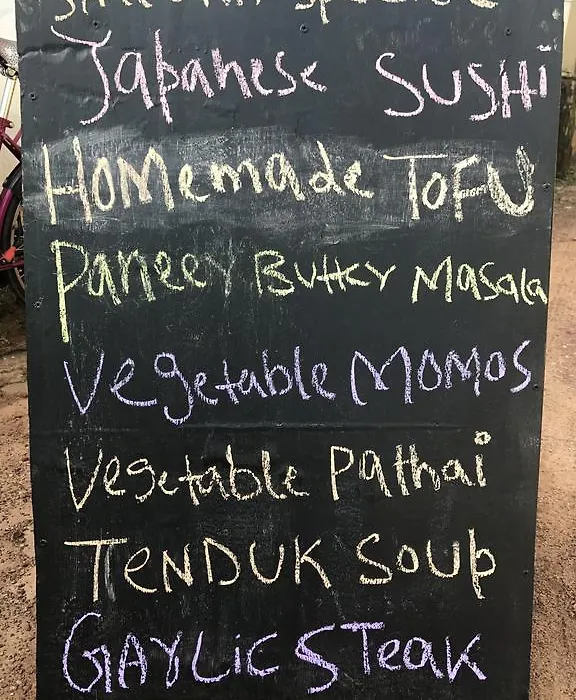 Japanese SUSHi
HoMemade ToFU
Paneer Butter Masala
Vegetable MOMOS
Vegetable Pathai
TeNDUK Soup
GARLic STeak